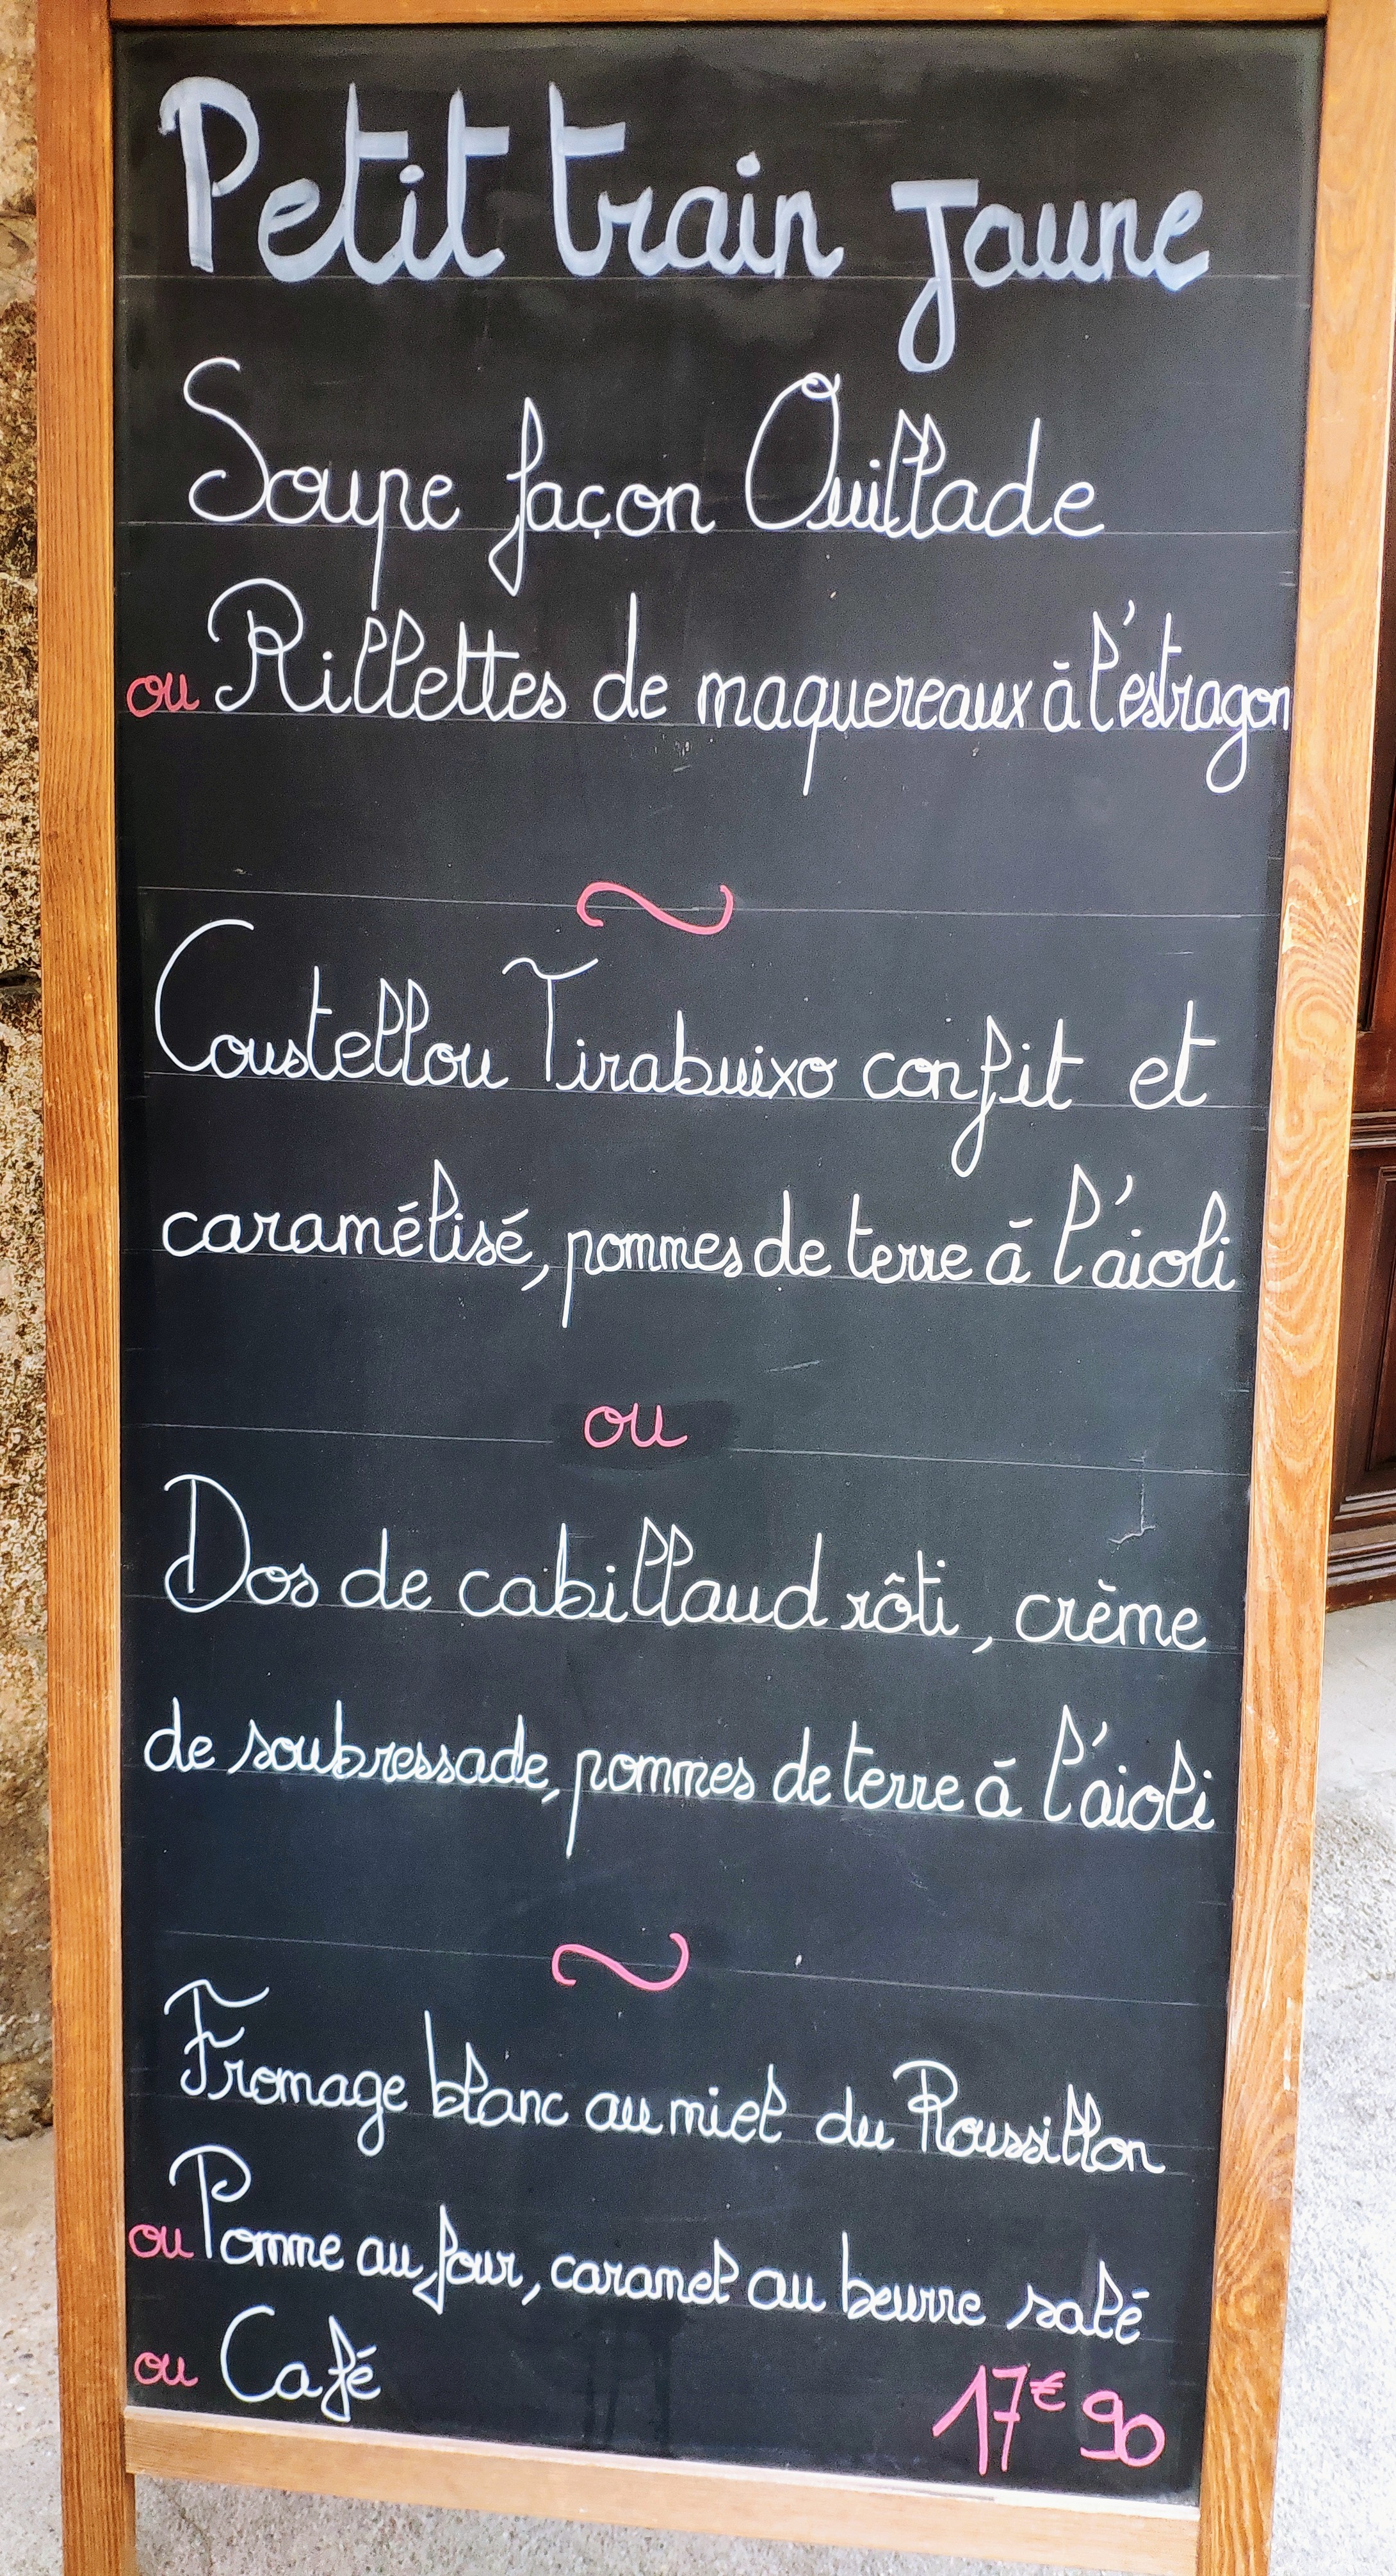 Petit train jaune
Soupe façon Ouillade
ou Rillettes de maquereaux à l'estragon
~
Coustellou Tirabuixo confit et
caramélisé, pommes de terre à l'aioli
ou
Dos de cabillaud rôti, crème
de soubressade, pommes de terre à l'aioli
~
Fromage blanc au miel du Roussillon
ou Pomme au four, caramel au beurre salé
ou Café 17€90